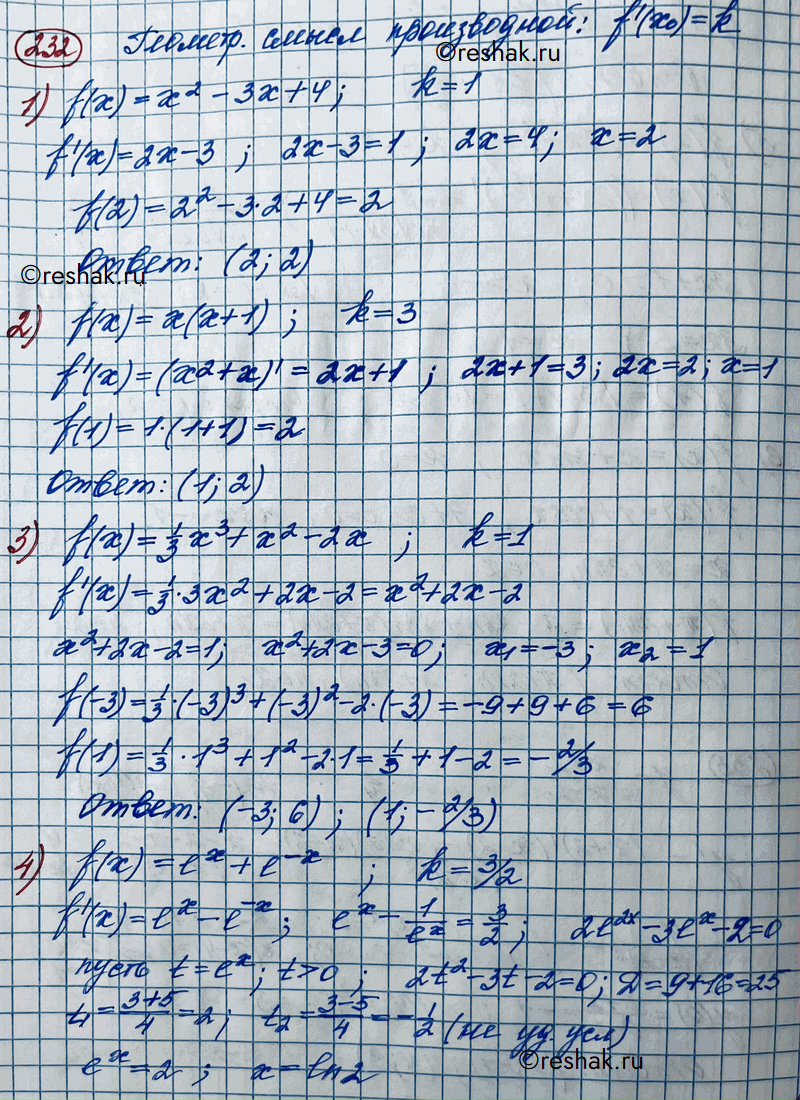 232 Геометр. смысл производной: f'(x₀) = k
©reshak.ru
1) f(x) = x² - 3x + 4; k = 1
f'(x) = 2x - 3 ; 2x - 3 = 1 ; 2x = 4; x = 2
f(2) = 2² - 3·2 + 4 = 2
Ответ: (2; 2)
©reshak.ru
2) f(x) = x(x+1) ; k = 3
f'(x) = (x² + x)' = 2x + 1 ; 2x + 1 = 3; 2x = 2; x = 1
f(1) = 1·(1+1) = 2
Ответ: (1; 2)
3) f(x) = 1/3 x³ + x² - 2x ; k = 1
f'(x) = 1/3 · 3x² + 2x - 2 = x² + 2x - 2
x² + 2x - 2 = 1; x² + 2x - 3 = 0; x₁ = -3 ; x₂ = 1
f(-3) = 1/3 · (-3)³ + (-3)² - 2·(-3) = -9 + 9 + 6 = 6
f(1) = 1/3 · 1³ + 1² - 2·1 = 1/3 + 1 - 2 = -2/3
Ответ: (-3; 6) ; (1; -2/3)
4) f(x) = eˣ + e⁻ˣ ; k = 3/2
f'(x) = eˣ - e⁻ˣ ; eˣ - 1/eˣ = 3/2 ; 2e²ˣ - 3eˣ - 2 = 0
пусть t = eˣ ; t > 0 ; 2t² - 3t - 2 = 0; D = 9 + 16 = 25
t₁ = (3+5)/4 = 2 ; t₂ = (3-5)/4 = -1/2 (не уд. усл)
eˣ = 2 ; x = ln2
©reshak.ru